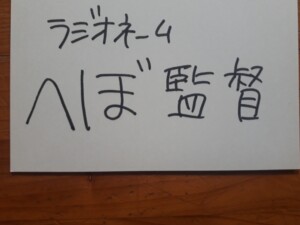 ラジオネーム
へぼ監督